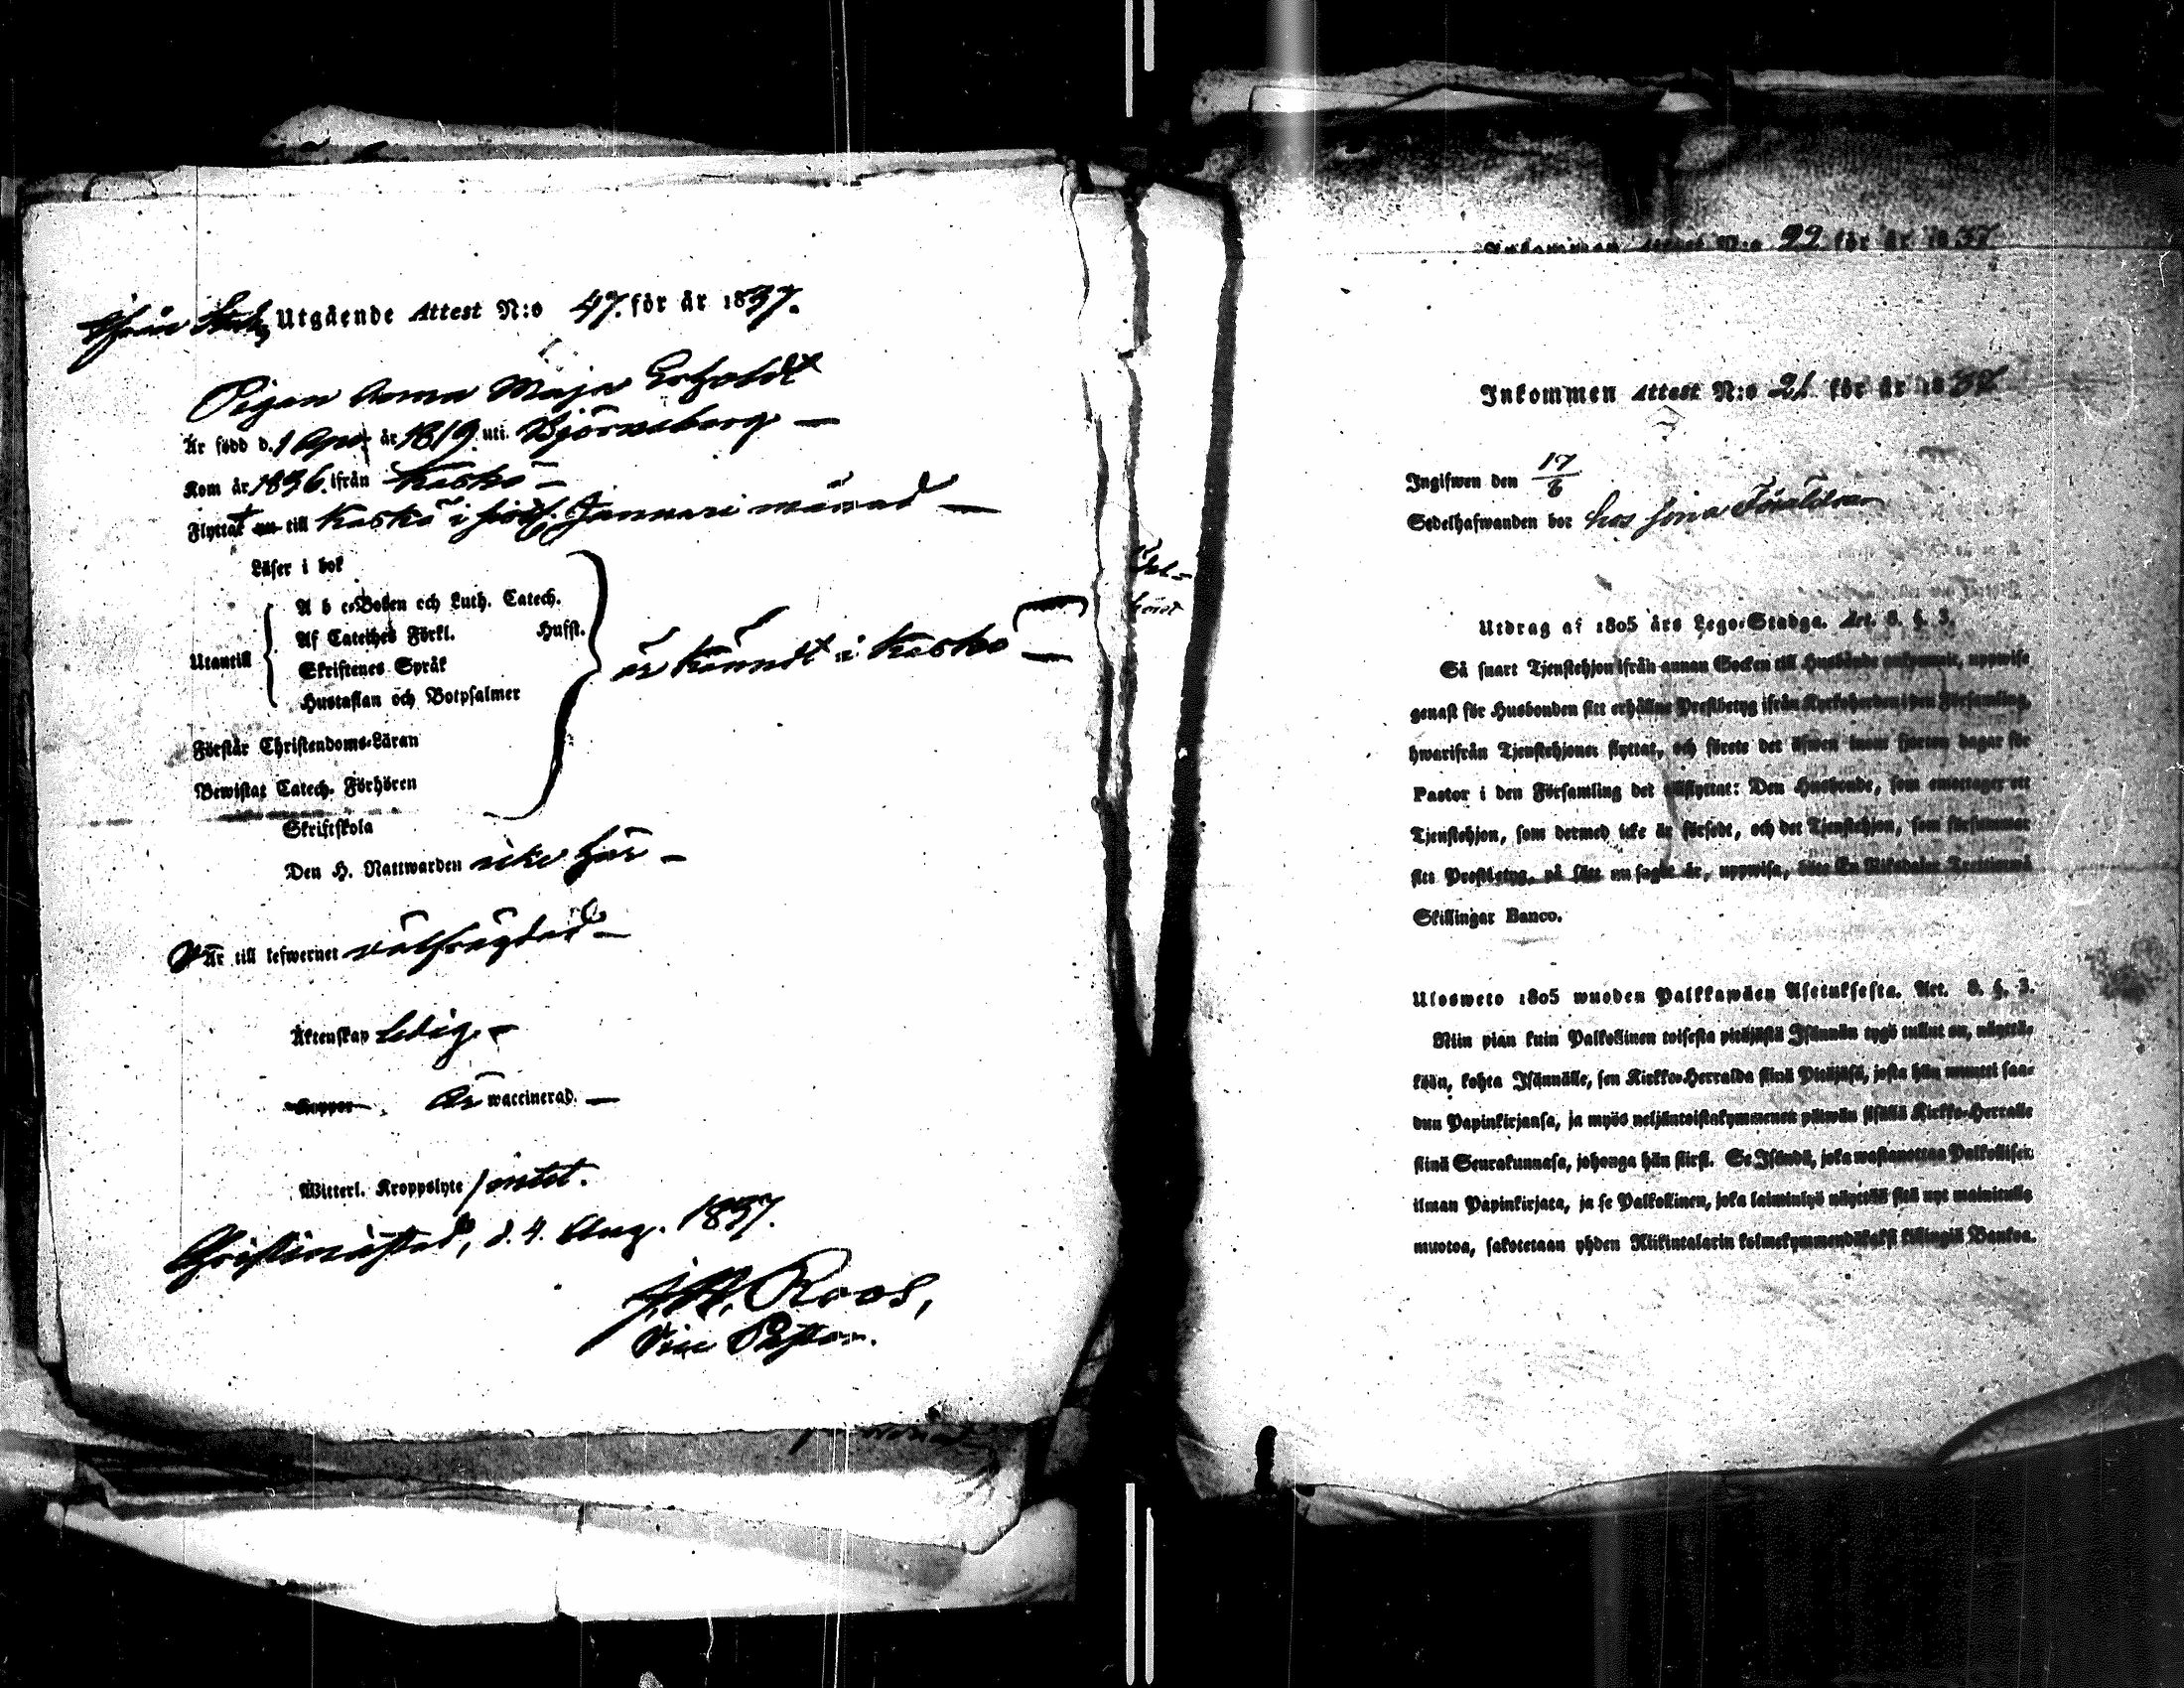 Utgående Attest N:o 47. för år 1837.
Pigan Anna Maja
Är född d. 1 Apr. år 1819. uti Björneborg —
Kom år 1836. ifrån Kaskö —
Flyttat till Kaskö i Januari månad —
Läser i bok
A b c-Boken och Luth. Catech.
Af Cateches Förkl. Husst.
Utantill
Skriftenes Språk
Hustaflan och Botpsalmer
är kändt i Kaskö —
Förstår Christendoms-Läran
Bewistat Catech. Förhören
Skriftskola
Den H. Nattwarden icke här —
Är till lefwernet välfrägdad —
Äktenskap ledig. —
Koppor. Är waccinerad. —
Witterl. Kroppslyte intet.
Christinæstad, d. 4. Aug. 1837.
Roos,
Vice Pastor.
Inkommen Attest N:o 22 för år 1837
Inkommen Attest N:o 21. för år 1837
Ingifwen den 17/6
Sedelhafwanden bor hos sina Föräldrar
Utdrag af 1805 års Lego-Stadga. Art. 8. §. 3.
Så snart Tjenstehjon ifrån annan Socken till Husbonde ankommit, uppwise
genast för Husbonden sitt erhållne Prestbetyg ifrån Kyrkoherden i den Församling,
hwarifrån Tjenstehjonet flyttat, och förete det äfwen inom fjorton dagar för
Pastor i den Församling det tillflyttat: Den Husbonde, som emottager ett
Tjenstehjon, som dermed icke är försedt, och det Tjenstehjon, som försummar
sitt Prestbetyg, på sätt nu sagdt är, uppwisa, böte En Riksdaler Trettiotwå
Skillingar Banco.
Ulosweto 1805 wuoden Palkkawäen Asetuksesta. Art. 8. §. 3.
Niin pian kuin Palkollinen toisesta pitäjästä Isännän tygö tullut on, näyttä-
köön, kohta Isännälle, sen Kirkko-Herralda siinä Pitäjäsä, josta hän muutti saa-
dun Papinkirjansa, ja myös neljäntoistakymmenen päiwän sisällä Kirkko-Herralle
siinä Seurakunnasa, johonga hän siirsi. Se Isändä, joka wastanottaa Palkollisen
ilman Papinkirjata, ja se Palkollinen, joka laiminlyö näyttää sitä nyt mainitulla
muotoa, sakotetaan yhden Riikintalarin kolmekymmendäkaksi killingiä Bankoa.